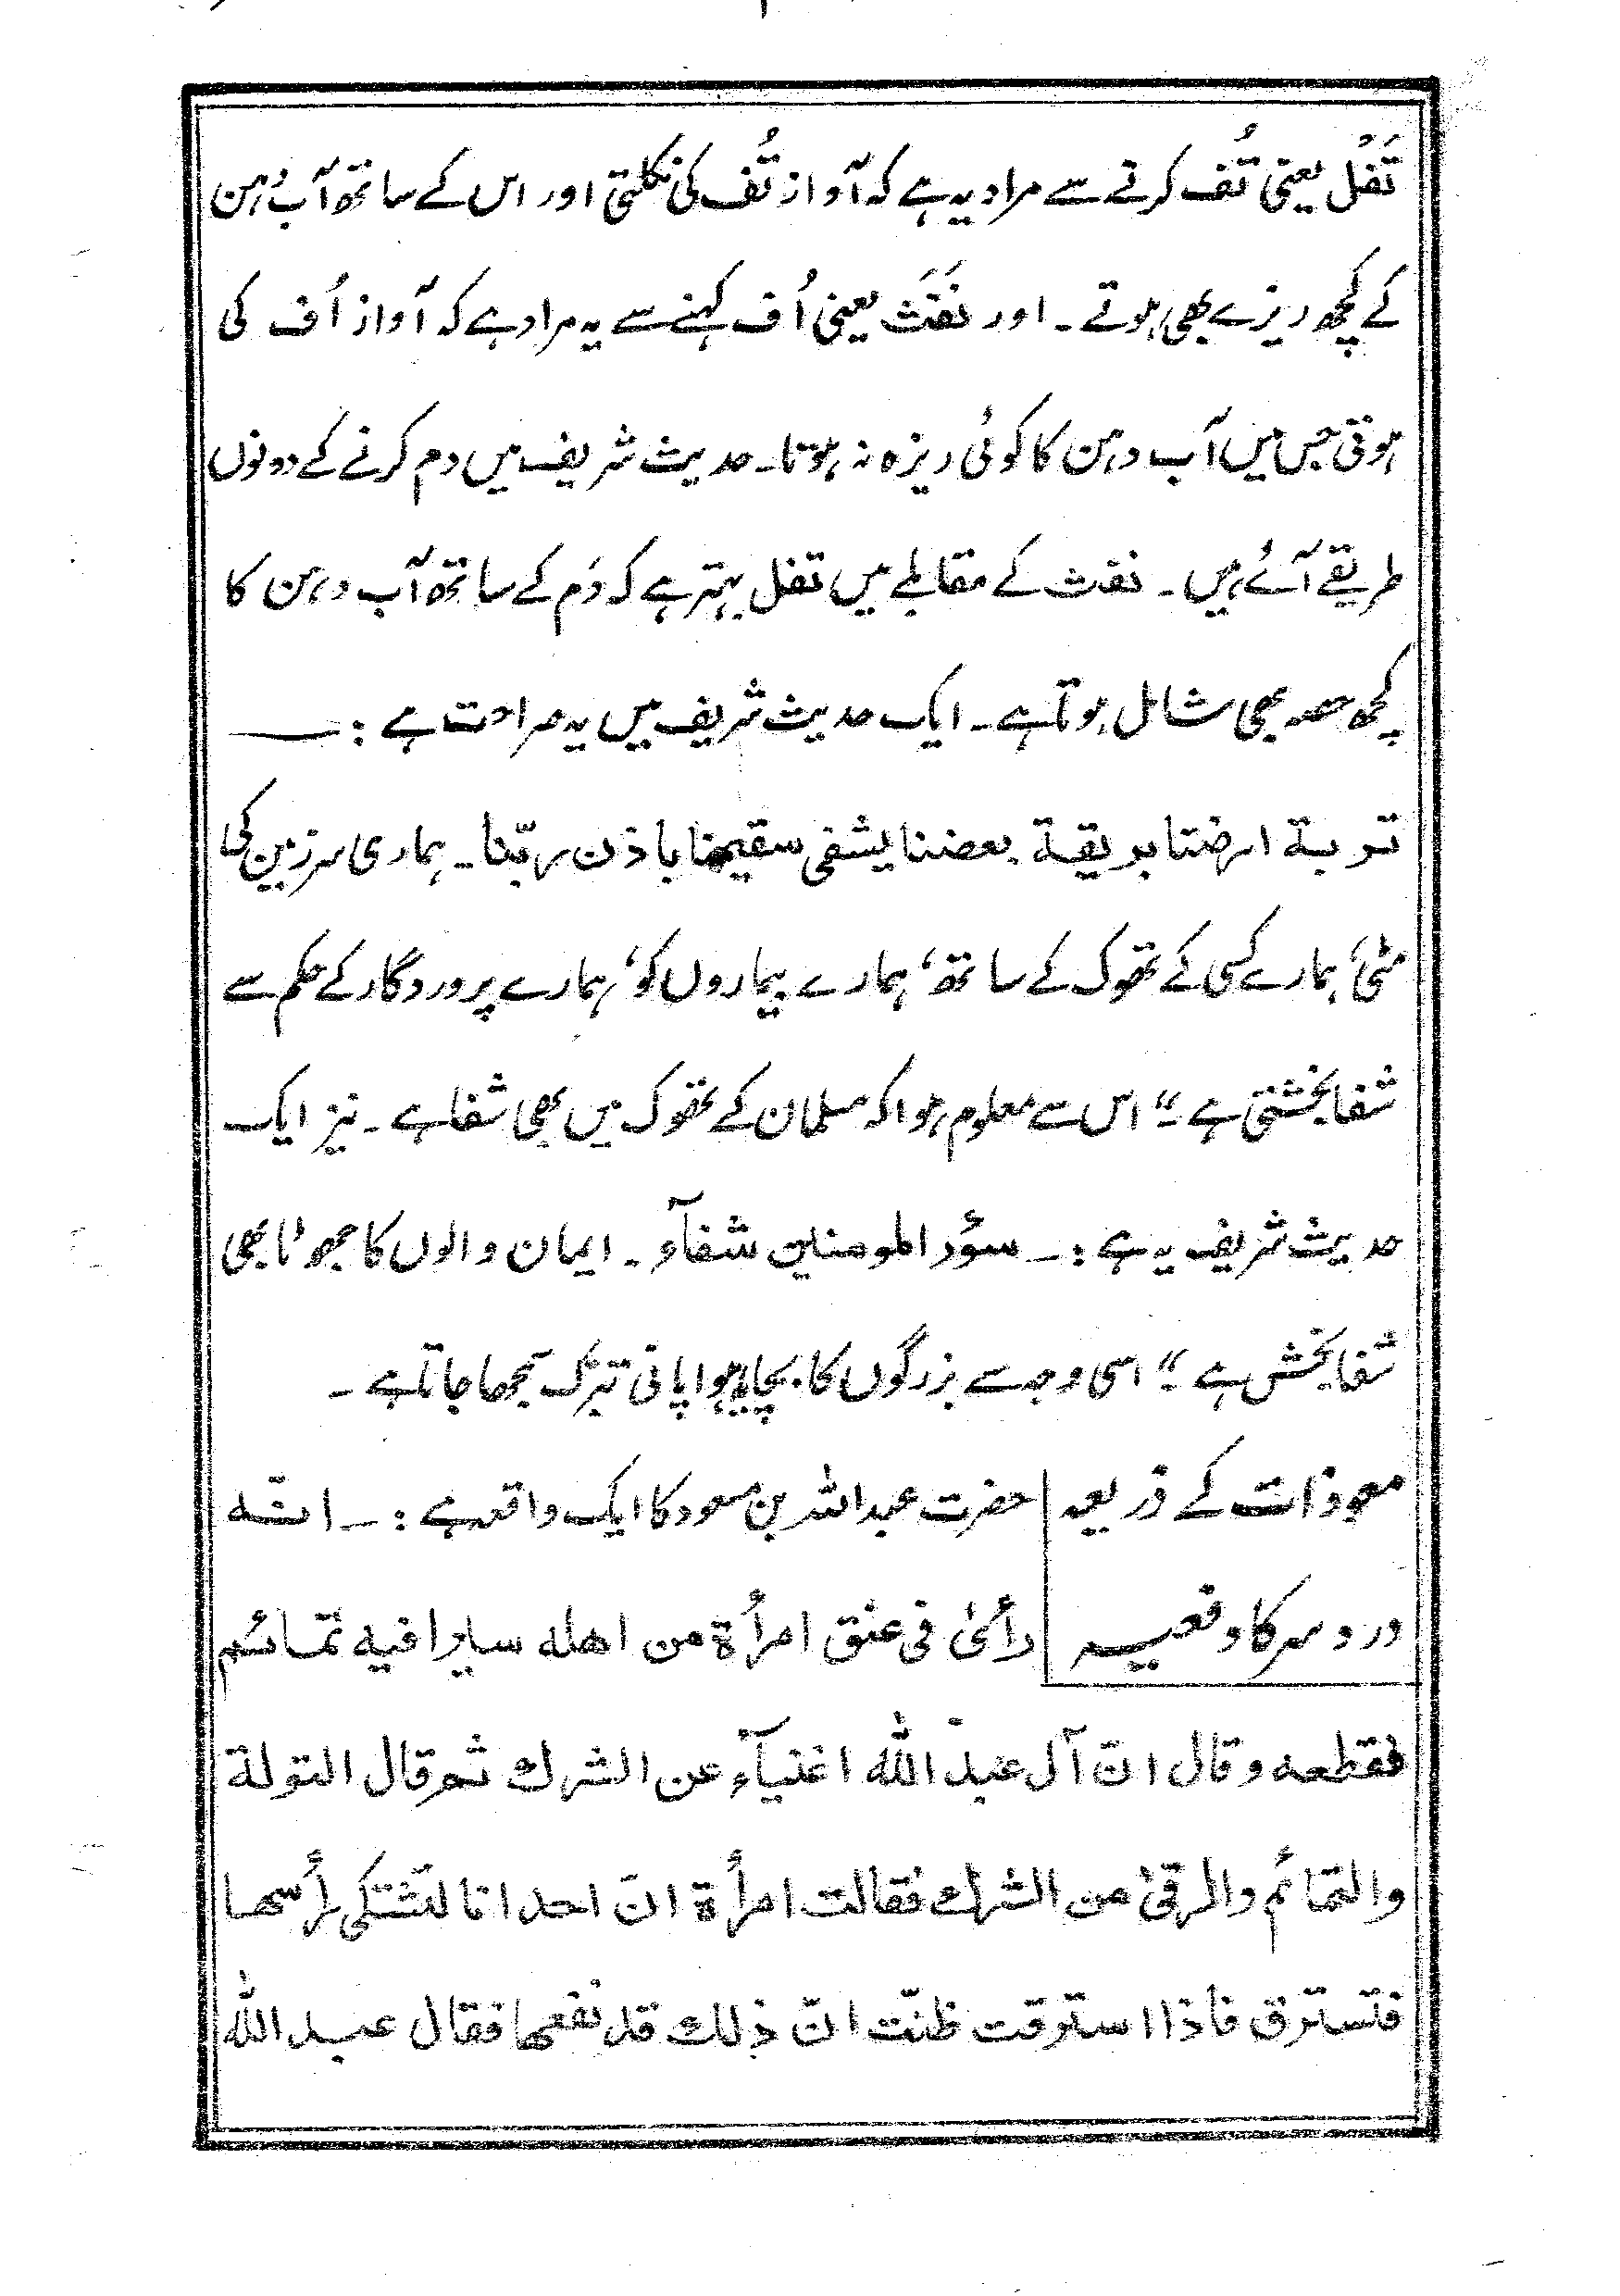 تَفْل یعنی تُف کرتے سے مراد یہ ہے کہ آواز تُف کی نکلتی اور اس کے ساتھ آبِ دُہن
کے کچھ ریزے بھی ہوتے۔ اور نَفَث یعنی اُف کہنے سے یہ مراد ہے کہ آواز اُف کی
ہوتی جس میں آب دہن کا کوئی ریزہ نہ ہوتا۔ حدیث شریف میں دم کرنے کے دونوں
طریقے آئے ہیں۔ نفث کے مقابلے میں تفل بہتر ہے کہ دَم کے ساتھ آب دہن کا
کچھ حصہ بھی شامل ہوتا ہے۔ ایک حدیث شریف میں یہ صراحت ہے :۔
تربة ارضنا بريقة بعضنا يشفى سقيمنا باذن ربّنا۔ ہماری سرزمین کی
مٹی، ہمارے کسی کے تھوک کے ساتھ، ہمارے بیماروں کو، ہمارے پروردگار کے حکم سے
شفا بخشتی ہے۔“ اس سے معلوم ہوا کہ مسلمان کے تھوک میں بھی شفا ہے۔ نیز ایک
حدیث شریف یہ ہے :۔ سؤر المومنین شفآء۔ ایمان والوں کا جھوٹا بھی
شفا بخش ہے۔“ اسی وجہ سے بزرگوں کا بچایا ہوا پانی تبرک سمجھا جاتا ہے۔
معوذات کے ذریعہ
دردِ سر کا دفعیہ
حضرت عبداللہ بن مسعود کا ایک واقعہ ہے :۔ انّه
رأى فى عنق امرأة من اهله سايرا فيه تمائم
فقطعه وقال انّ آل عبد اللّٰه اغنيآء عن الشرك ثم قال التولة
والتمائم والرقىٰ من الشرك فقالت امرأة انّ احدانا لتشتكى رأسها
فتسترق فاذا استرقت ظنّت انّ ذلك قد نفعها فقال عبد اللّٰه